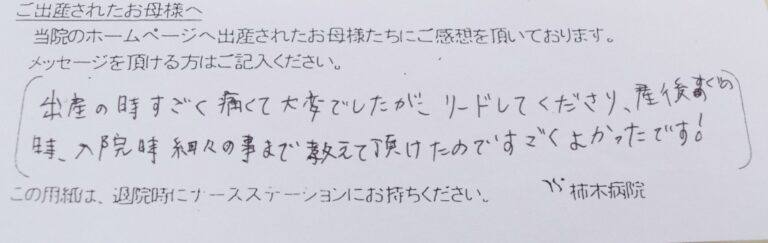 ご出産されたお母様へ
当院のホームページへ出産されたお母様たちにご感想を頂いております。
メッセージを頂ける方はご記入ください。
出産の時すごく痛くて大変でしたが、リードしてくださり、産後すぐの
時、入院時細々の事まで教えて頂けたのですごくよかったです!
この用紙は、退院時にナースステーションにお持ちください。
柿木病院